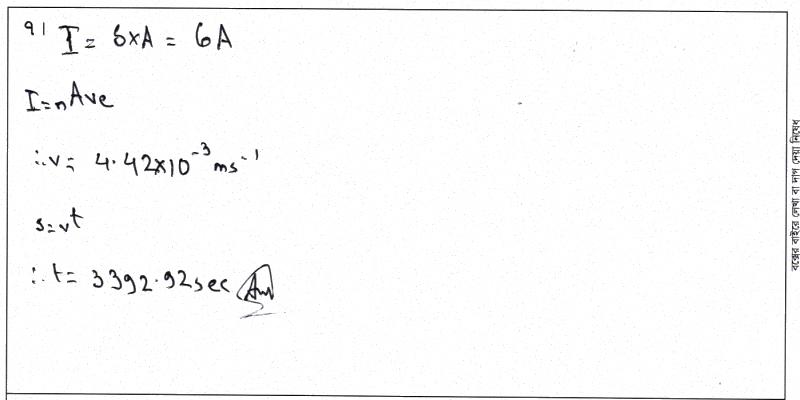 91 I = 6×A = 6A
I=nAve
∴v= 4.42×10⁻³ ms⁻¹
s=vt
∴t= 3392.92sec Ans
বক্সের বাইরে লেখা বা দাগ দেয়া নিষেধ